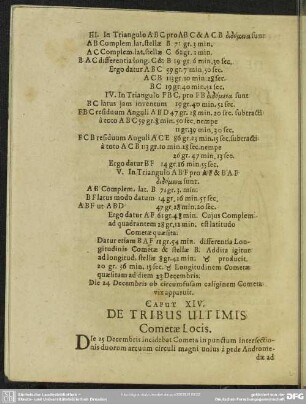 III. In Triangulo ABC pro AB C & A C B δεδομένα sunt
A B Complem. lat. stellæ B 71 gr. 3 min.
A C Complem. lat. stellæ C 62 gr. 1 min.
B A C differentia long. C de B 19 gr. 6 min. 30 sec.
Ergo datur A B C 59 gr. 7 min. 50 sec.
A C B 113 gr. 10 min. 28 sec.
B C 19 gr. 40 min. 52 sec.
IV. In Triangulo FBC, pro FB δεδομένα sunt
B C latus jam inventum 19 gr. 40 min. 52 sec.
F B C residuum Anguli A B D 47 gr. 28 min. 20 sec. subtracti
à toto A B C 59 gr. 8 min. 50 sec. nempe
11 gr. 39 min. 30 sec.
F C B residuum Anguli A C E 86 gr. 23 min. 15 sec. subtracti
à toto A C B 113 gr. 10 min. 28 sec. nempe
26 gr. 47 min. 13 sec.
Ergo datur BF 14 gr. 16 min. 55 sec.
V. In Triangulo ABF pro AF & BAF
δεδομένα sunt.
A B Complem. lat. B 71 gr. 3. min.
B F latus modo datum 14 gr. 16 min. 57 sec.
A B F ut A B D 47 gr. 28 min. 20 sec.
Ergo datur A F 61 gr. 48 min. Cujus Complem.
ad quadrantem 28 gr. 12 min. est latitudo
Cometæ quæsita.
Datur etiam B A F 12 gr. 54 min. differentia Lon-
gitudinis Cometæ & stellæ B. Addita igitur
ad longitud. stellæ 8 gr. 42 min. ♉ producit.
20 gr. 56 min. 15 sec. ♉ Longitudinem Cometæ
quæsitam ad diem 23 Decembris.
Die 24 Decembris ob circumfusam caliginem Cometa
vix apparuit.
CAPUT XIV.
DE TRIBUS ULTIMIS
Cometæ Locis.
Die 25 Decembris incidebat Cometa in punctum intersectio-
nis duorum arcuum circuli magni unius à pede Androme-
dæ ad